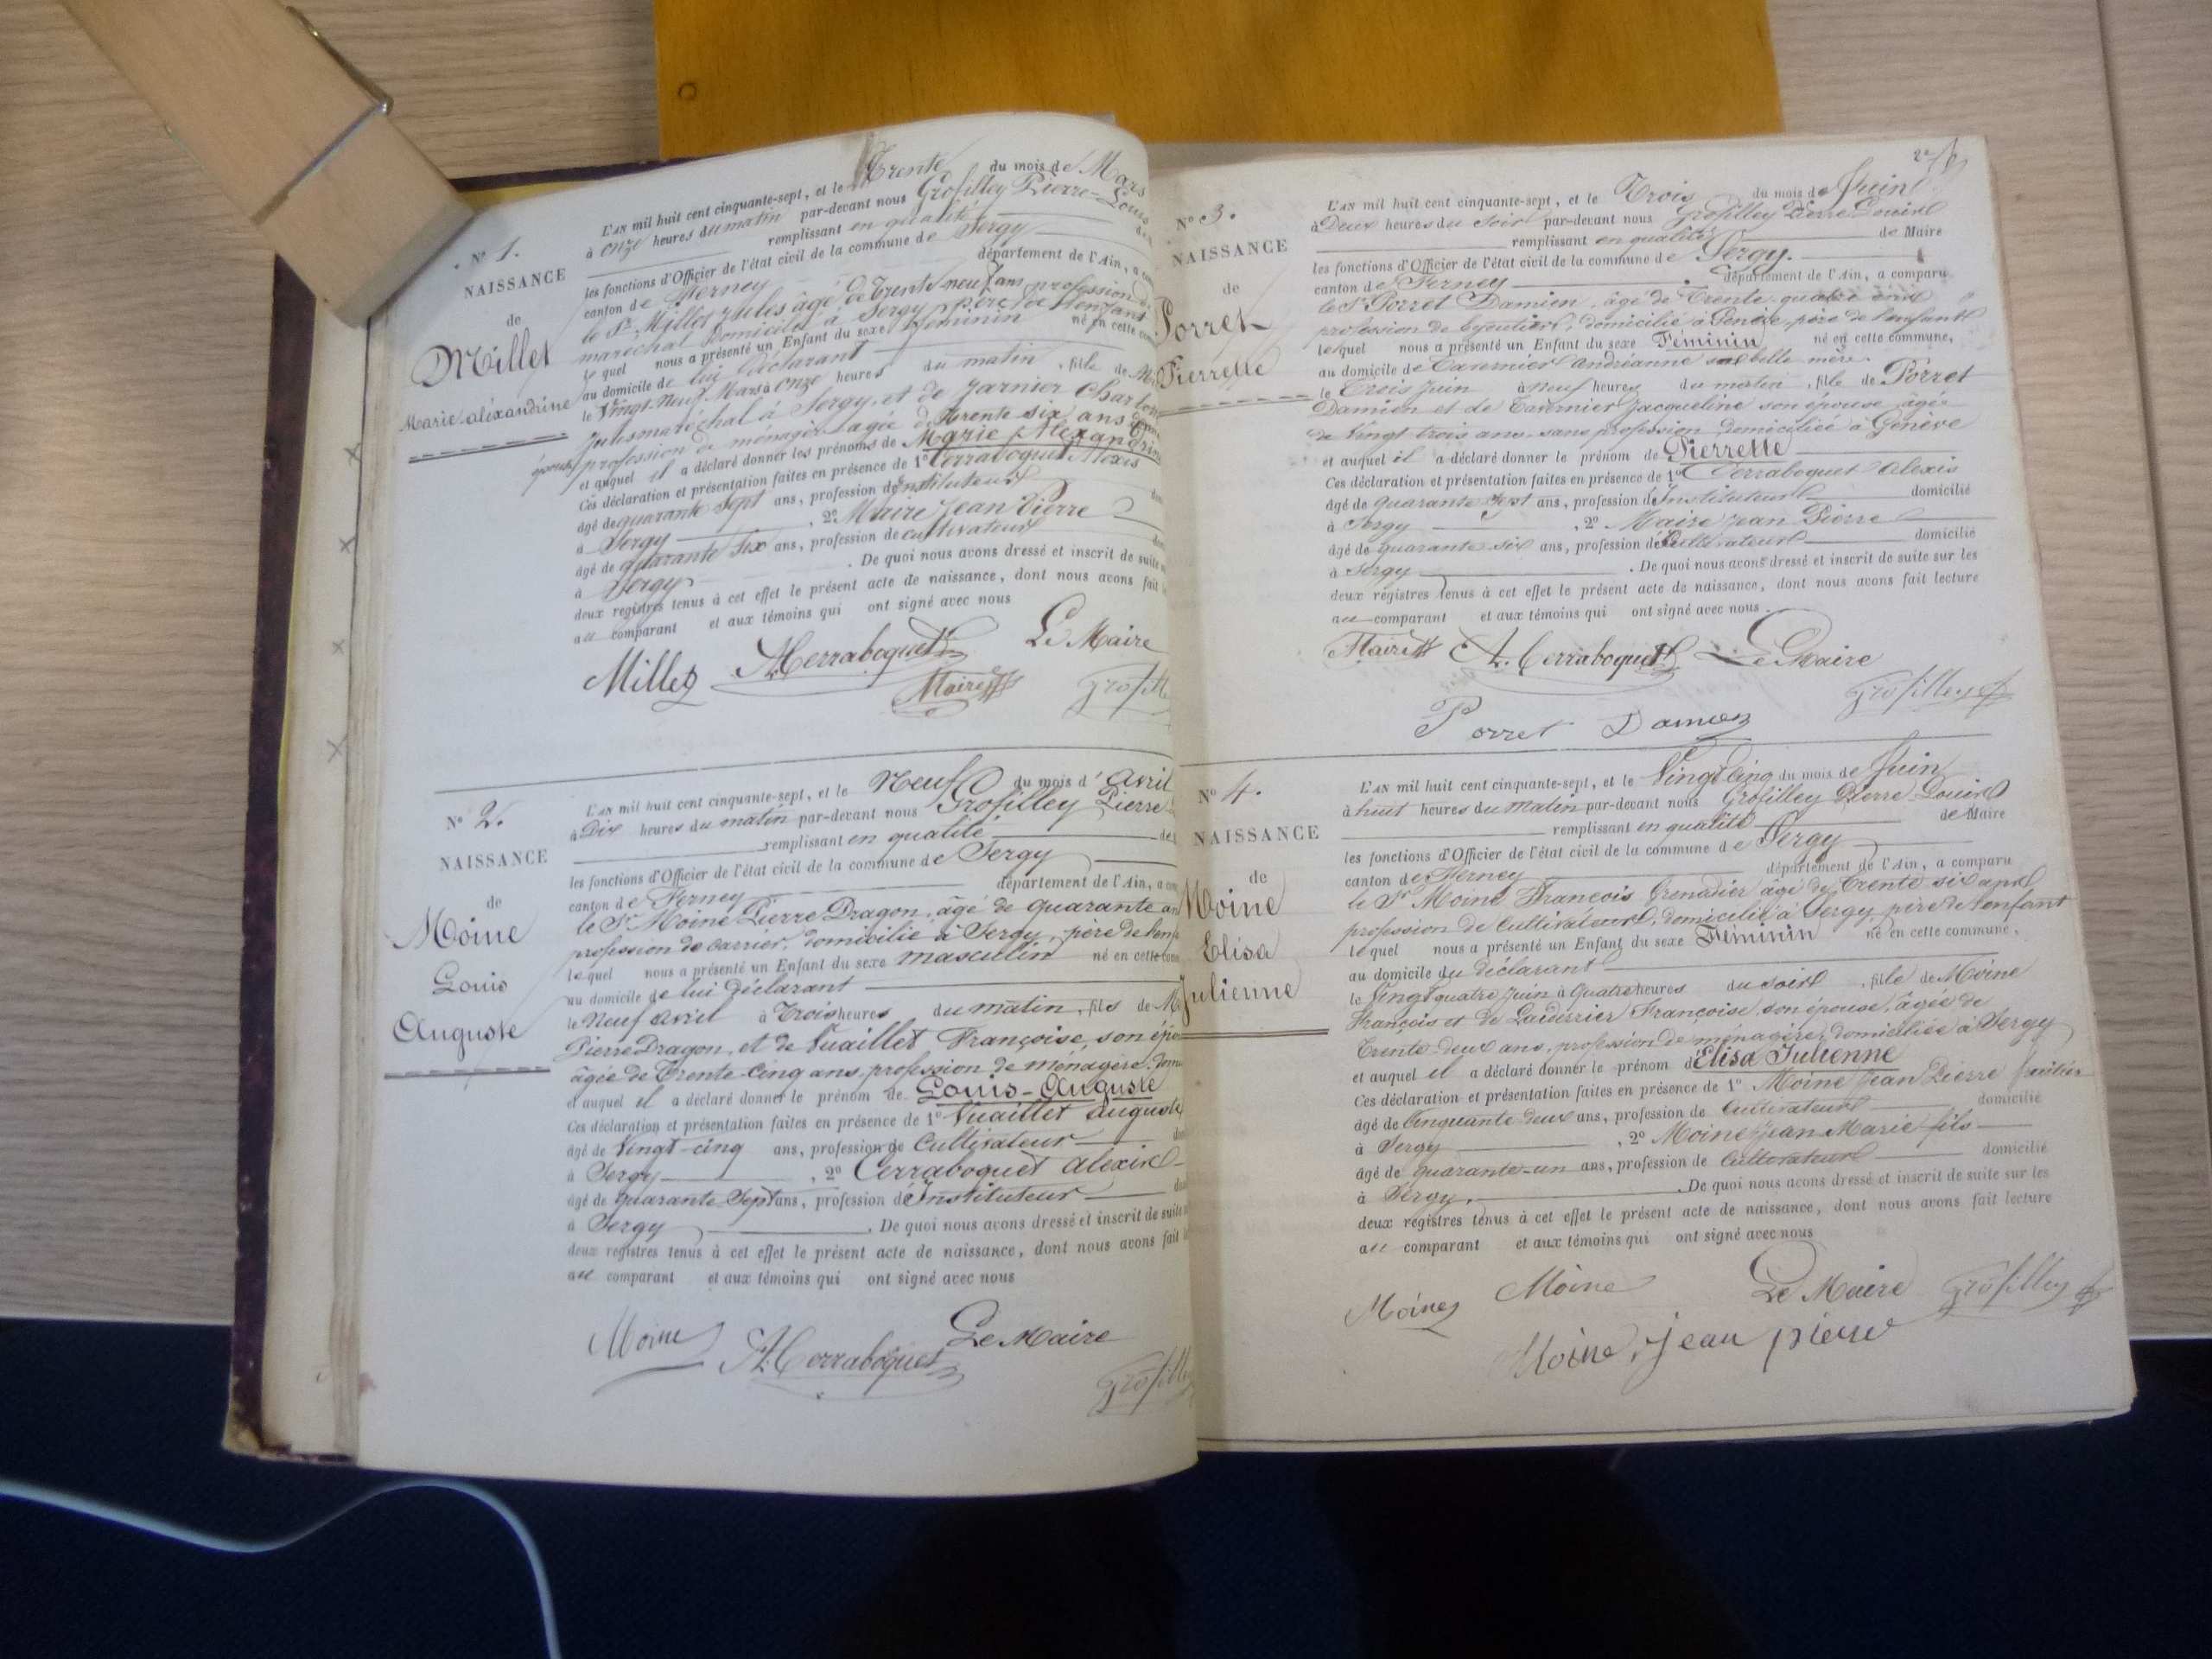 N° 1.
NAISSANCE
de
Millet
Marie-aléxandrine
L'AN mil huit cent cinquante-sept, et le Trente du mois de Mars
à onze heures du matin par-devant nous Grosfilley Pierre-Louis
remplissant en qualité
les fonctions d'Officier de l'état civil de la commune de Sergy
canton de Ferney département de l'Ain, a
le Sr. Millet Jules âgé de Trente neuf ans profession de
maréchal domicilié à Sergy père de l'enfant
lequel nous a présenté un Enfant du sexe féminin né en cette
au domicile de lui déclarant
le Vingt-neuf Mars à onze heures du matin, fille de
Jules maréchal à Sergy et de Garnier
épouse profession de ménagère agée de Trente six ans
et auquel il a déclaré donner les prénoms de Marie Alexandrine
Ces déclaration et présentation faites en présence de 1° Cerraboquet Alexis
âgé de quarante sept ans, profession d'Instituteur
à Sergy, 2° Maire Jean Pierre
âgé de quarante six ans, profession de cultivateur
à Sergy. De quoi nous avons dressé et inscrit de suite
deux registres tenus à cet effet le présent acte de naissance, dont nous avons fait
au comparant et aux témoins qui ont signé avec nous
Millet A. Cerraboquet Le Maire
Maire Grosfilley
N° 2.
NAISSANCE
de
Moine
Louis
Auguste
L'AN mil huit cent cinquante-sept, et le Neuf du mois d'Avril
à Dix heures du matin par-devant nous Grosfilley Pierre
remplissant en qualité de
les fonctions d'Officier de l'état civil de la commune de Sergy
canton de Ferney département de l'Ain, a
le Sr. Moine Pierre Dragon, âgé de quarante
profession de carrier, domicilié à Sergy, père de
lequel nous a présenté un Enfant du sexe masculin né en cette
au domicile de lui déclarant
le Neuf avril à Trois heures du matin, fils de
Pierre Dragon, et de Vuaillet Françoise, son
âgée de Trente-Cinq ans, profession de ménagère
et auquel il a déclaré donner le prénom de Louis-Auguste
Ces déclaration et présentation faites en présence de 1° Vuaillet Auguste
âgé de Vingt-cinq ans, profession de Cultivateur
à Sergy, 2° Cerraboquet Alexis
âgé de quarante-Sept ans, profession d'Instituteur
à Sergy. De quoi nous avons dressé et inscrit de suite
deux registres tenus à cet effet le présent acte de naissance, dont nous avons fait
au comparant et aux témoins qui ont signé avec nous
Moine A. Cerraboquet Le Maire
2e
N° 3.
NAISSANCE
de
Porret
Pierrette
L'AN mil huit cent cinquante-sept, et le Trois du mois de Juin
à Deux heures du Soir par-devant nous Grosfilley Pierre Louis
remplissant en qualité de Maire
les fonctions d'Officier de l'état civil de la commune de Sergy.
canton de Ferney département de l'Ain, a comparu
le Sr. Porret Damien, âgé de Trente quatre ans
profession de bijoutier, domicilié à Genève, père de l'enfant
lequel nous a présenté un Enfant du sexe Féminin né en cette commune,
au domicile de Tavernier Andréanne sa belle mère.
le Trois Juin à neuf heures du matin, fille de Porret
Damien et de Tavernier Jacqueline son épouse âgée
de Vingt trois ans sans profession domiciliée à Genève
et auquel il a déclaré donner le prénom de Pierrette
Ces déclaration et présentation faites en présence de 1° Cerraboquet Alexis
âgé de quarante Sept ans, profession d'Instituteur domicilié
à Sergy, 2° Maire Jean Pierre
âgé de quarante six ans, profession de Cultivateur domicilié
à Sergy. De quoi nous avons dressé et inscrit de suite sur les
deux registres tenus à cet effet le présent acte de naissance, dont nous avons fait lecture
au comparant et aux témoins qui ont signé avec nous.
Maire A. Cerraboquet Le Maire
Grosfilley
Porret Damien
N° 4.
NAISSANCE
de
Moine
Elisa
Julienne
L'AN mil huit cent cinquante-sept, et le Vingt Cinq du mois de Juin
à huit heures du matin par-devant nous Grosfilley Pierre-Louis
remplissant en qualité de Maire
les fonctions d'Officier de l'état civil de la commune de Sergy
canton de Ferney département de l'Ain, a comparu
le Sr. Moine François Grenadier âgé de Trente six ans
profession de Cultivateur, domicilié à Sergy père de l'enfant
lequel nous a présenté un Enfant du sexe Féminin né en cette commune,
au domicile du déclarant
le Vingt quatre Juin à Quatre heures du soir, fille de Moine
François et de Françoise, son épouse, âgée de
Trente-deux ans, profession de ménagère, domiciliée à Sergy
et auquel il a déclaré donner le prénom d'Elisa Julienne
Ces déclaration et présentation faites en présence de 1° Moine Jean Pierre
âgé de Cinquante Deux ans, profession de Cultivateur domicilié
à Sergy, 2° Moine Jean Marie fils
âgé de quarante-un ans, profession de Cultivateur domicilié
à Sergy. De quoi nous avons dressé et inscrit de suite sur les
deux registres tenus à cet effet le présent acte de naissance, dont nous avons fait lecture
au comparant et aux témoins qui ont signé avec nous
Moine Moine Le Maire Grosfilley
Moine, jean pierre